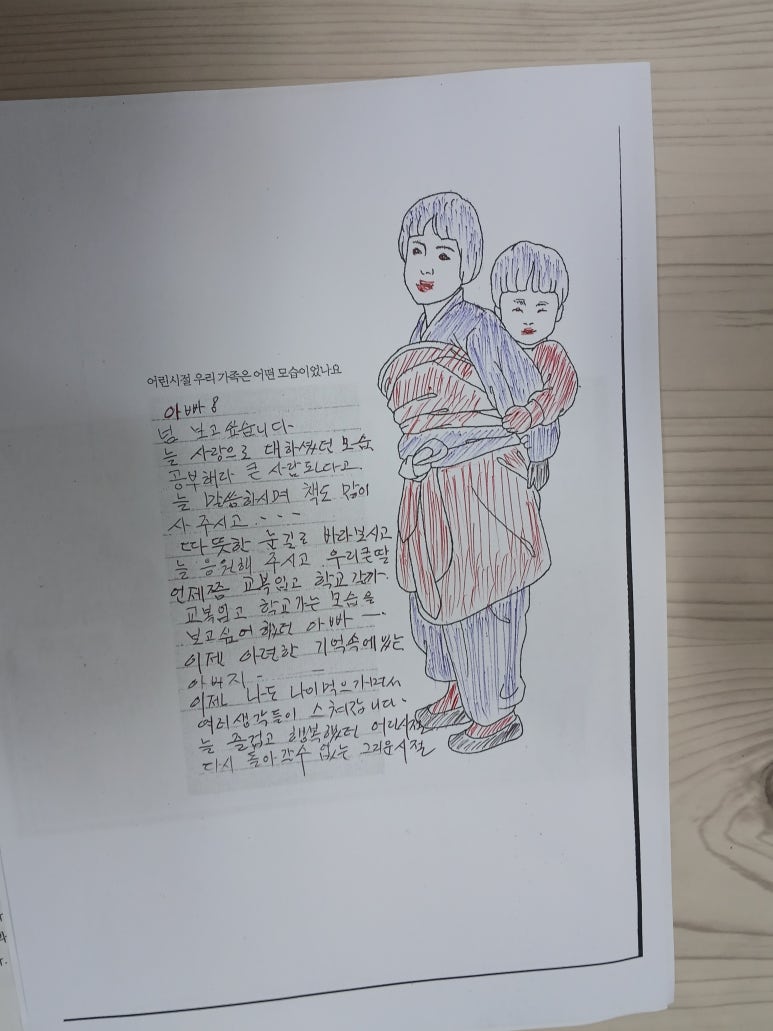 어린시절 우리 가족은 어떤 모습이었나요
아빠
넘 보고 싶습니다.
늘 사랑으로 대하셨던 모습
공부해라 큰 사람 된다고
늘 말씀하시며 책도 많이
사 주시고 . - - -
따뜻한 눈길로 바라보시고
늘 응원해 주시고 . 우리큰딸
언제쯤 교복입고 학교 갈까.
교복입고 학교가는 모습을
보고싶어 했던 아빠 — .
이젠 아련한 기억속에 있는
아버지 . -
이제 나도 나이먹으가면서
여러생각들이 스쳐갑니다.
늘 즐겁고 행복했던 어린시절
다시 돌아갈수 없는 그리운시절